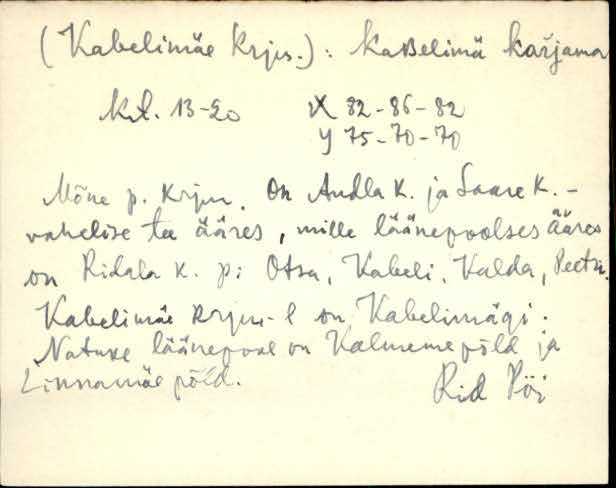 (Kabelimäe Krjm.): kaBelimä kařjama
Kt. 13-20 X 82-86-82
Y 75-70-70
Mõne p. Krjm. On Audla k. ja Saare k. -
vahelise tee ääres, mille läänepoolses ääres
on Ridala k. p: Otsa, Kabeli, Kalda, Peetri.
Kabelimäe krjm-l on Kabelimägi.
Natuke läänepool on Kalmemepõld ja
Linnamäe põld. Rid Pöi